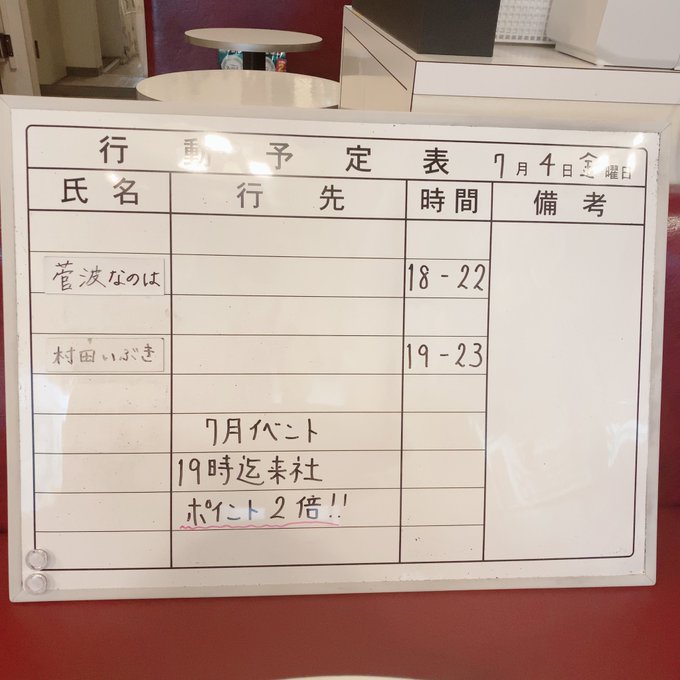 行動予定表 7月4日金曜日
氏名 行先 時間 備考
菅波なのは 18-22
村田いぶき 19-23
7月イベント
19時迄来社
ポイント2倍!!